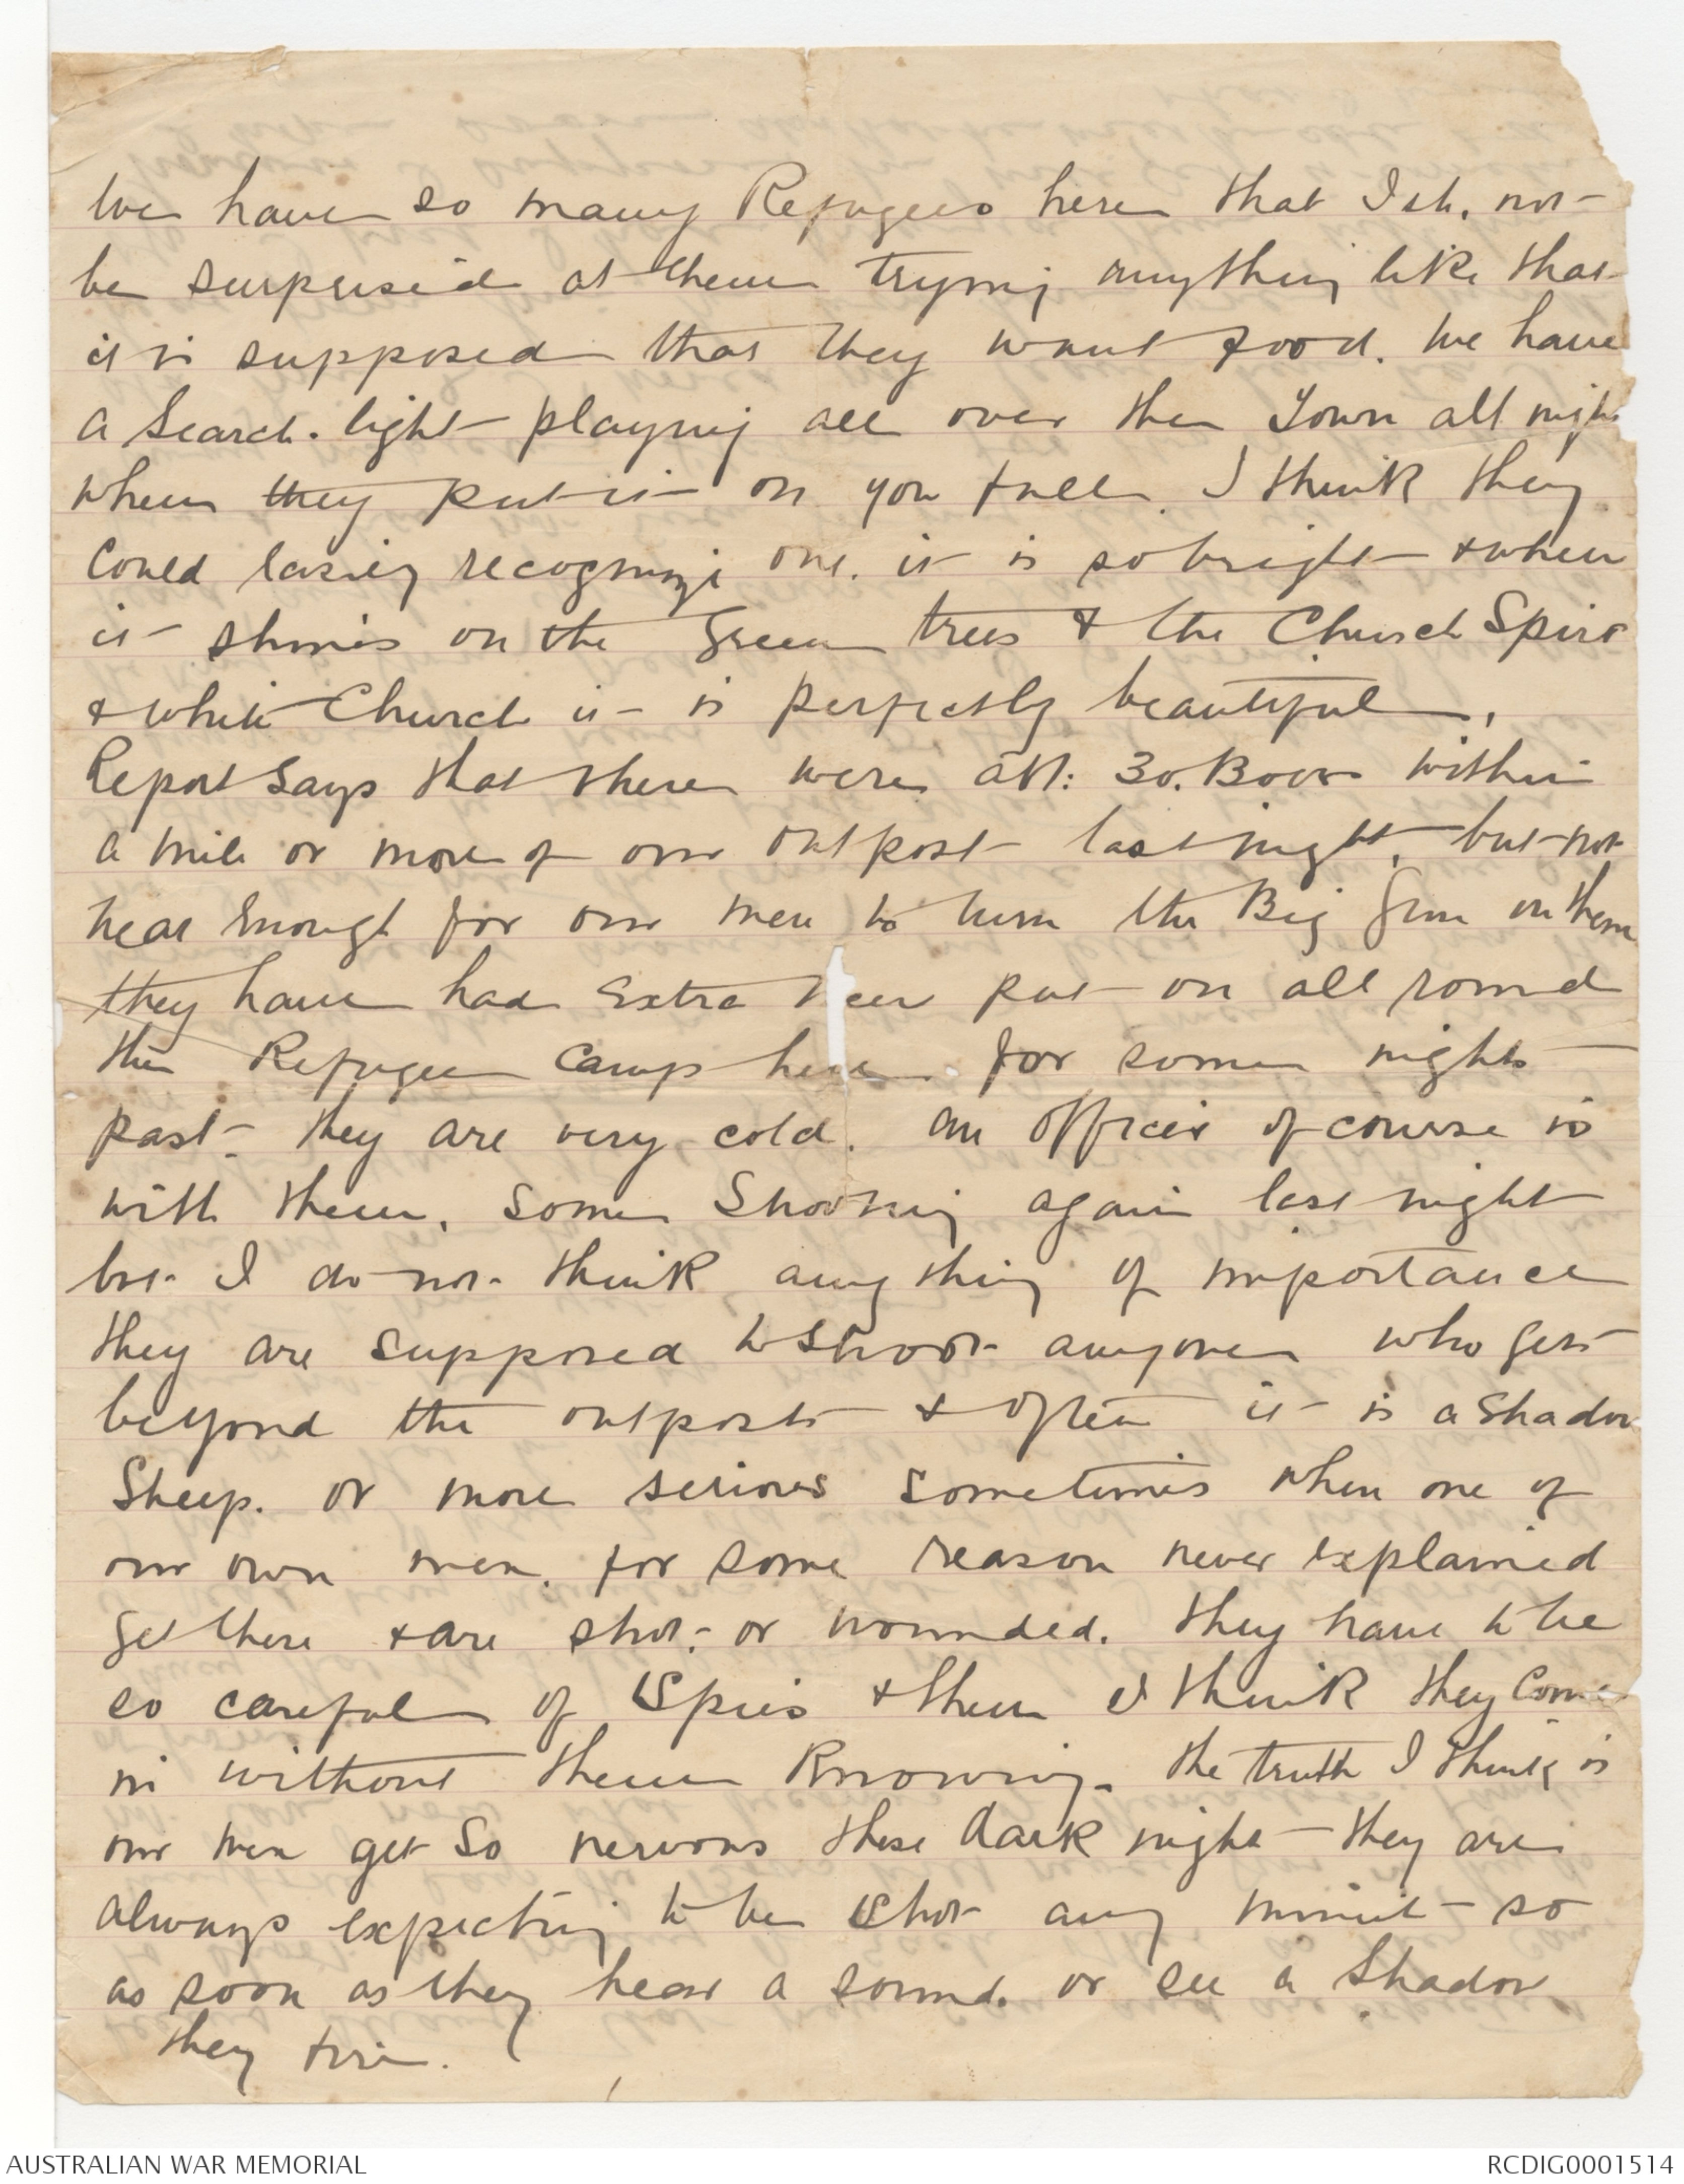 We have so many Refugees here that I sh. not
be surprised at them trying anything like that
it is supposed that they want food. We have
a Search. light playing all over the Town all night
when they put it on you full. I think they
could easily recognize one. it is so bright & when
it shines on the Green trees & the Church Spire
& white Church it is perfectly beautiful.
Report says that there were abt: 30. Boers within
a mile or more of our outpost last night, but not
near enough for our men to turn the Big Gun on them
they have had extra men put on all round
the Refugee Camp here. for some nights
past - they are very cold. an officer of course is
with them. some shooting again last night
but I do not think anything of importance
they are supposed to shoot anyone who gets
beyond the outposts & often it is a shadow
Sheep. or more serious sometimes when one of
our own men. for some reason never explained
get there & are shot - or wounded. they have to be
so careful of Spies & then I think they come
in without them knowing. the truth I think is
our men get so nervous these dark night - they are
always expecting to be shot any minit - so
as soon as they hear a sound. or see a shadow
they fire.
AUSTRALIAN WAR MEMORIAL
RCDIG0001514